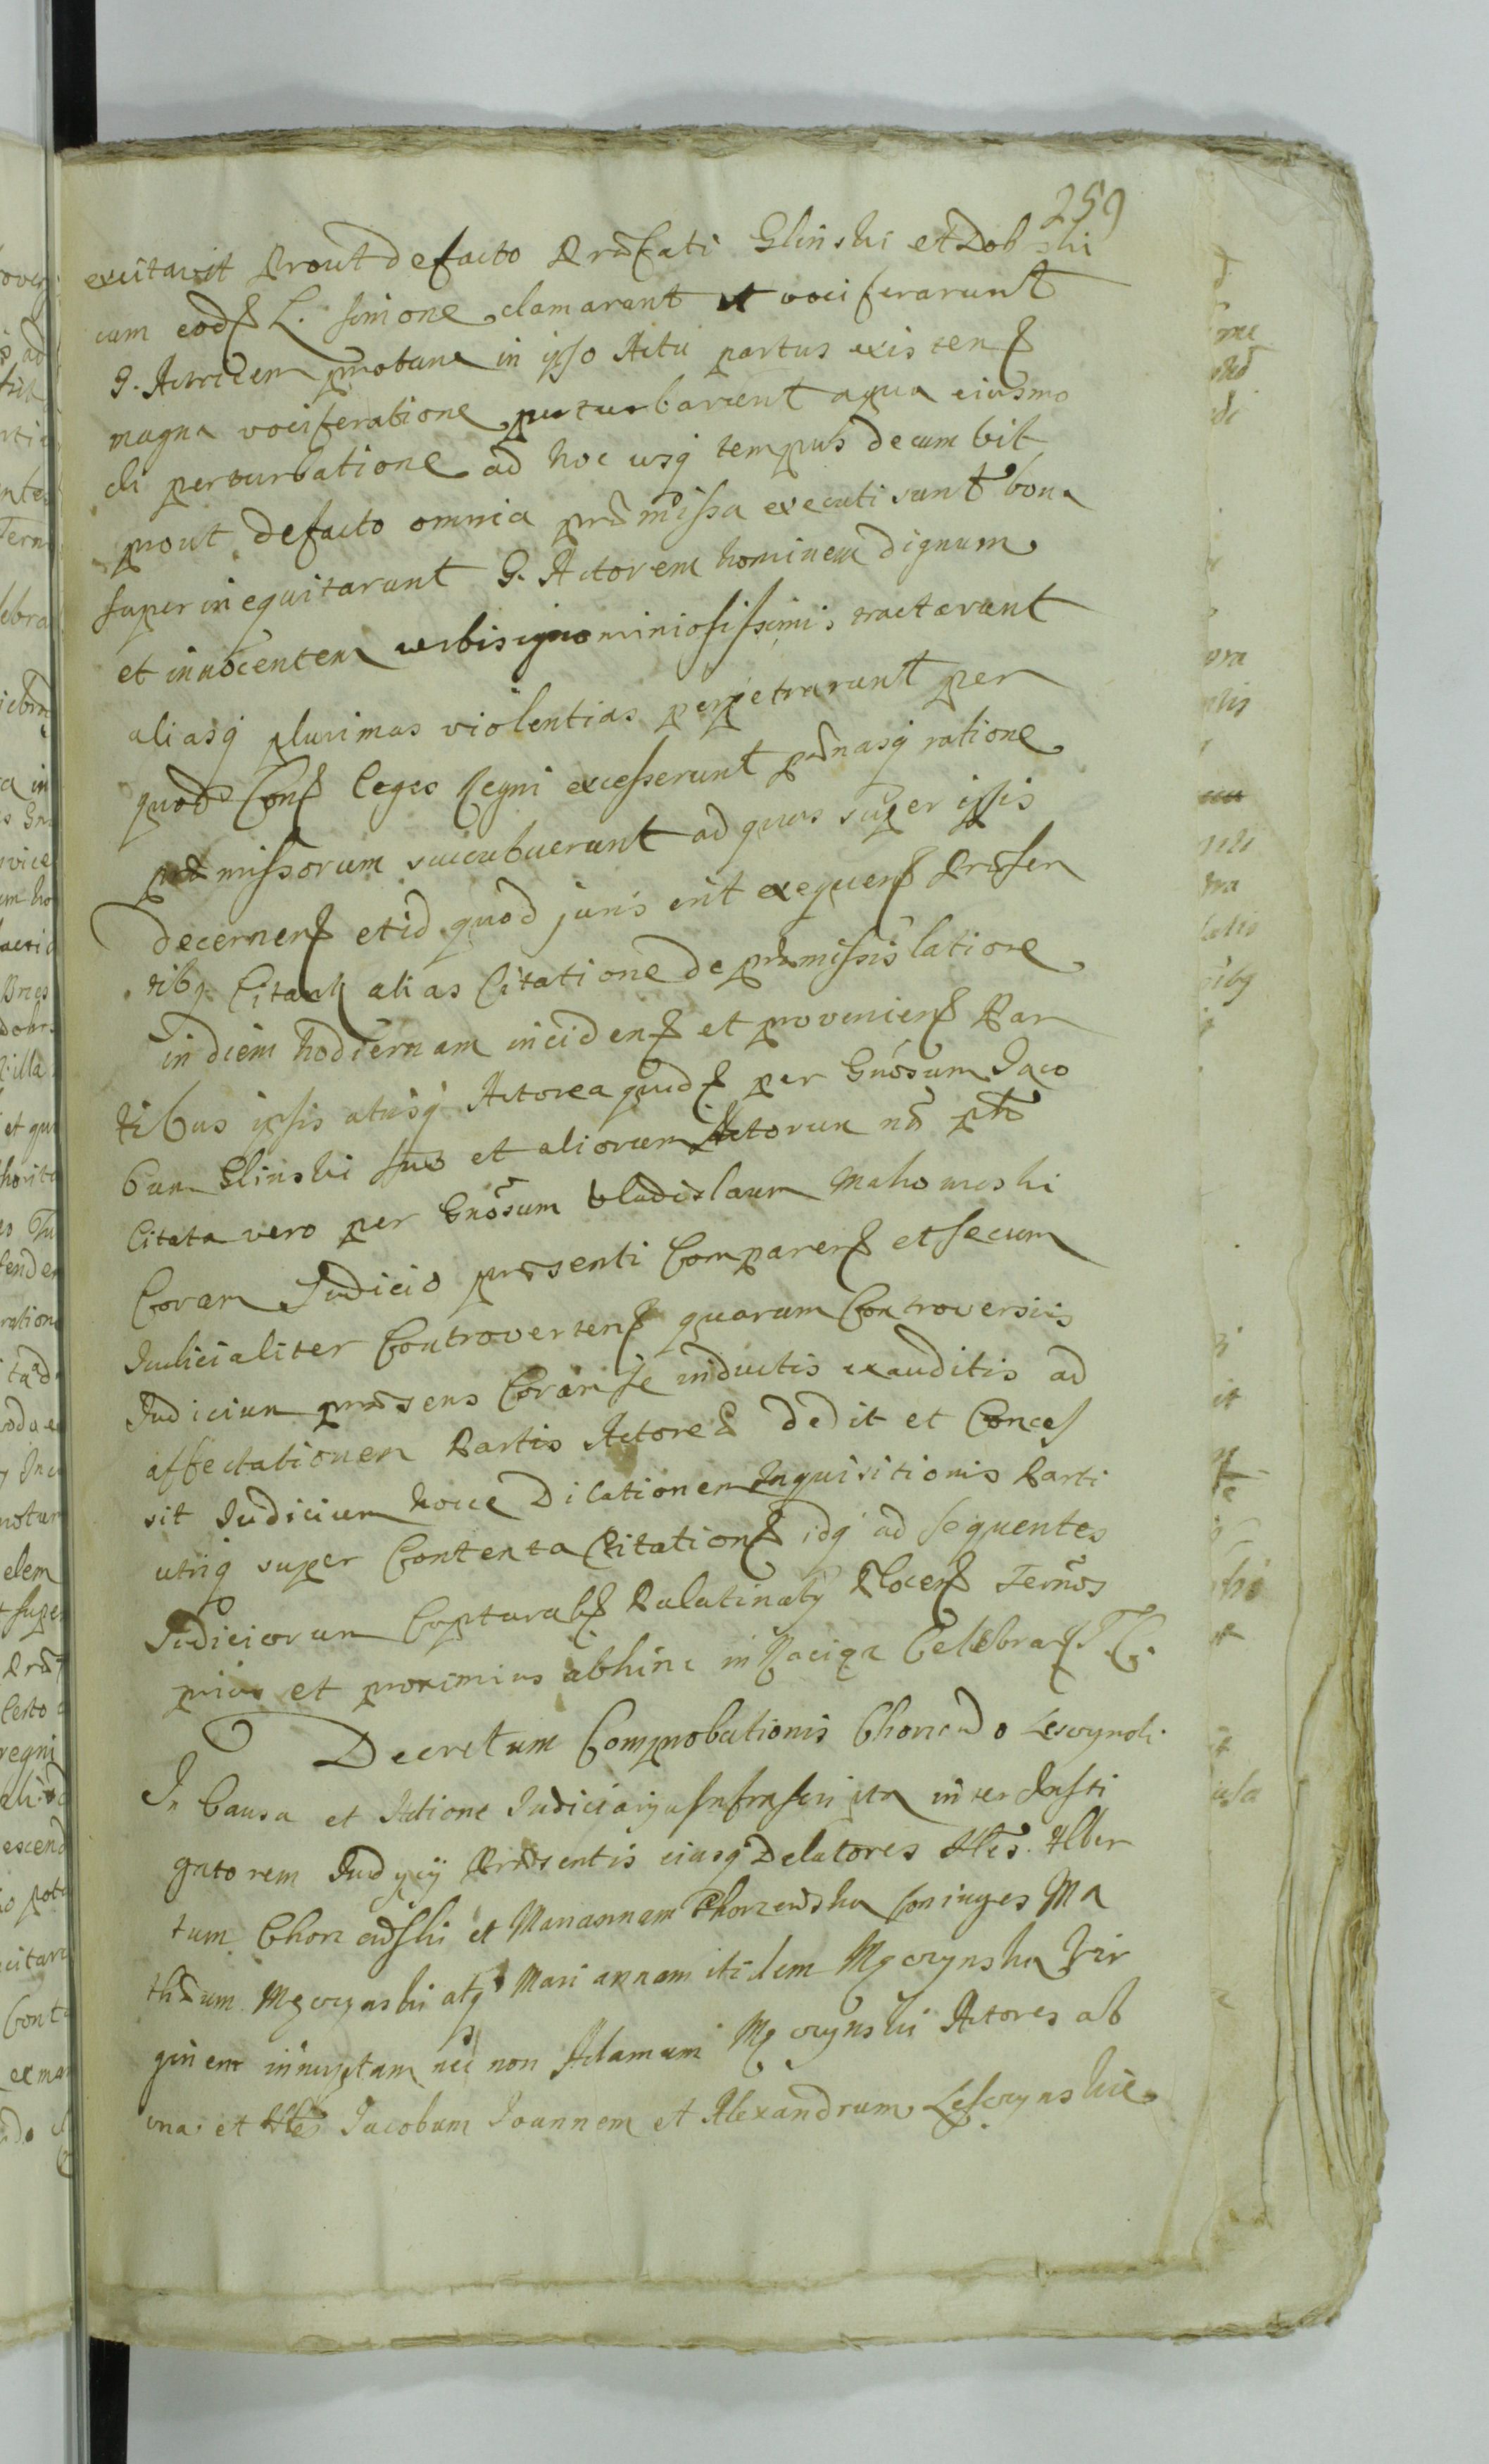 259
excitavit Prout defacto Præfati Glinski et Dobski
cum eod L. Simone clamarunt et vociferarunt
G. Actricem protunc in ipso Actu partus existen
magna vociferatione perturbarent a qua eiusmo
di perturbatione ad hoc usq tempus decumbit
prout defacto omnia præmissa executi sunt bona
superinequitarunt G. Actorem hominem dignum
et innocentem verbis ignominiosissimis tractarunt
aliasq plurimas violentias perpetrarunt per
quod Con leges Regni excesserunt pænasq ratione
præmissorum succubuerunt ad quas super ipsis
decernen et id quod juris erit exequen Præsen
tibq Citant alias Citatione de præmissis latiore
in diem hodiernam inciden et provenien Par
tibus ipsis utrisq Actorea quid per Gnosum Jaco
bum Glinski suo et aliorum Actorum nõ
Citata vero per Gnosum Vladislaum Mahowski
Coram Judicio præsenti Comparen et secum
Judicialiter Controverten quarum Controversiis
Judicium præsens Coram se inductis exauditis ad
affectationem Partis Actoreæ dedit et Conces
sit Judicium hocce Dilationem Inquisitionis Parti
utriq super Contenta Citation idq ad sequentes
Judiciorum Captural Palatinatq Plocen Termos
prius et proximius abhinc in Raciąz Celebra T. G.
Decretum Comprobationis Chorzewo Lesczynski
In Causa et Actione Judiciaria Infrascripta inter Insti
gatorem Judycij Præsentis eiusq Delatores Nles. Alber
tum Chorzewski et Mariannam Chorzewska Coniuges Ma
thæum Mączynski atq Mariannam itidem Mączynska Vir
ginem innuptam nec non Adamum Mączynski Actores ab
una et Nles Jacobum Joannem et Alexandrum Lesczynskie